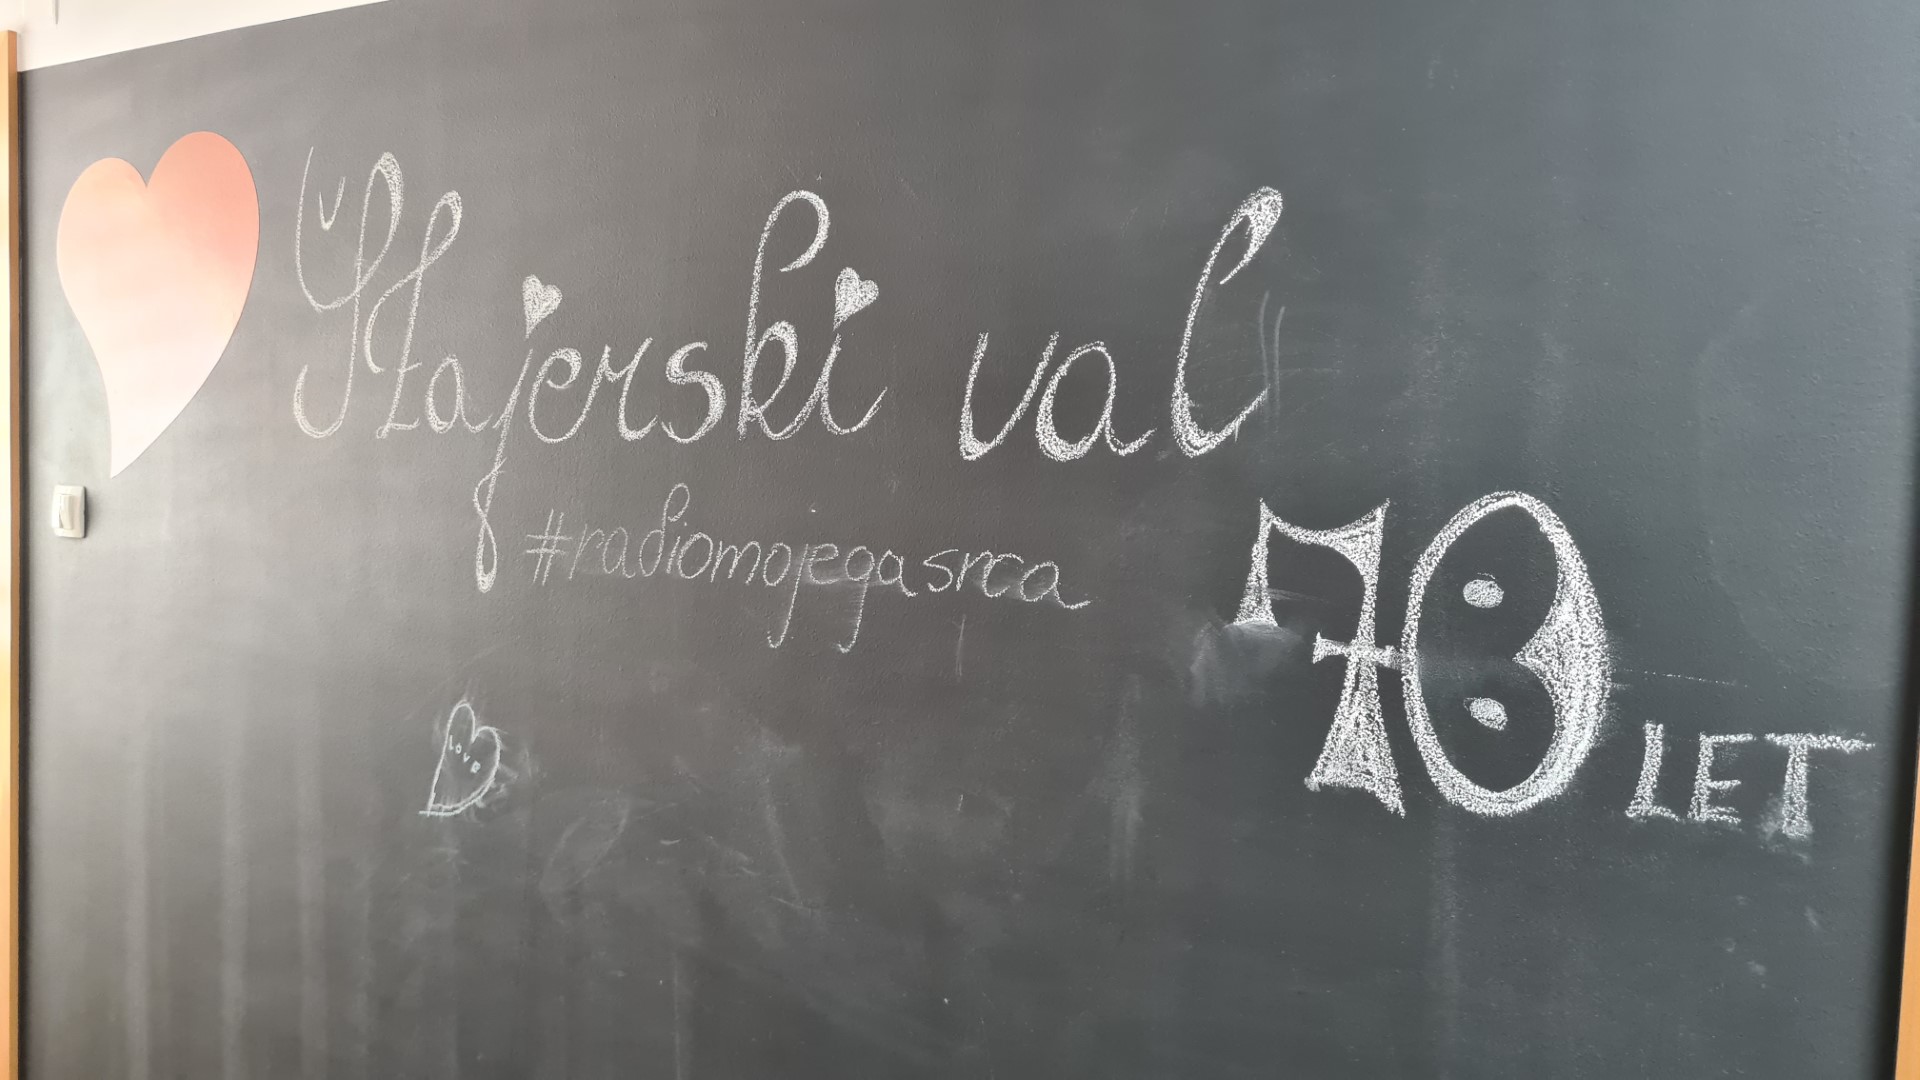 Štajerski val
#radiomojegasrca
70 LET
LOVE